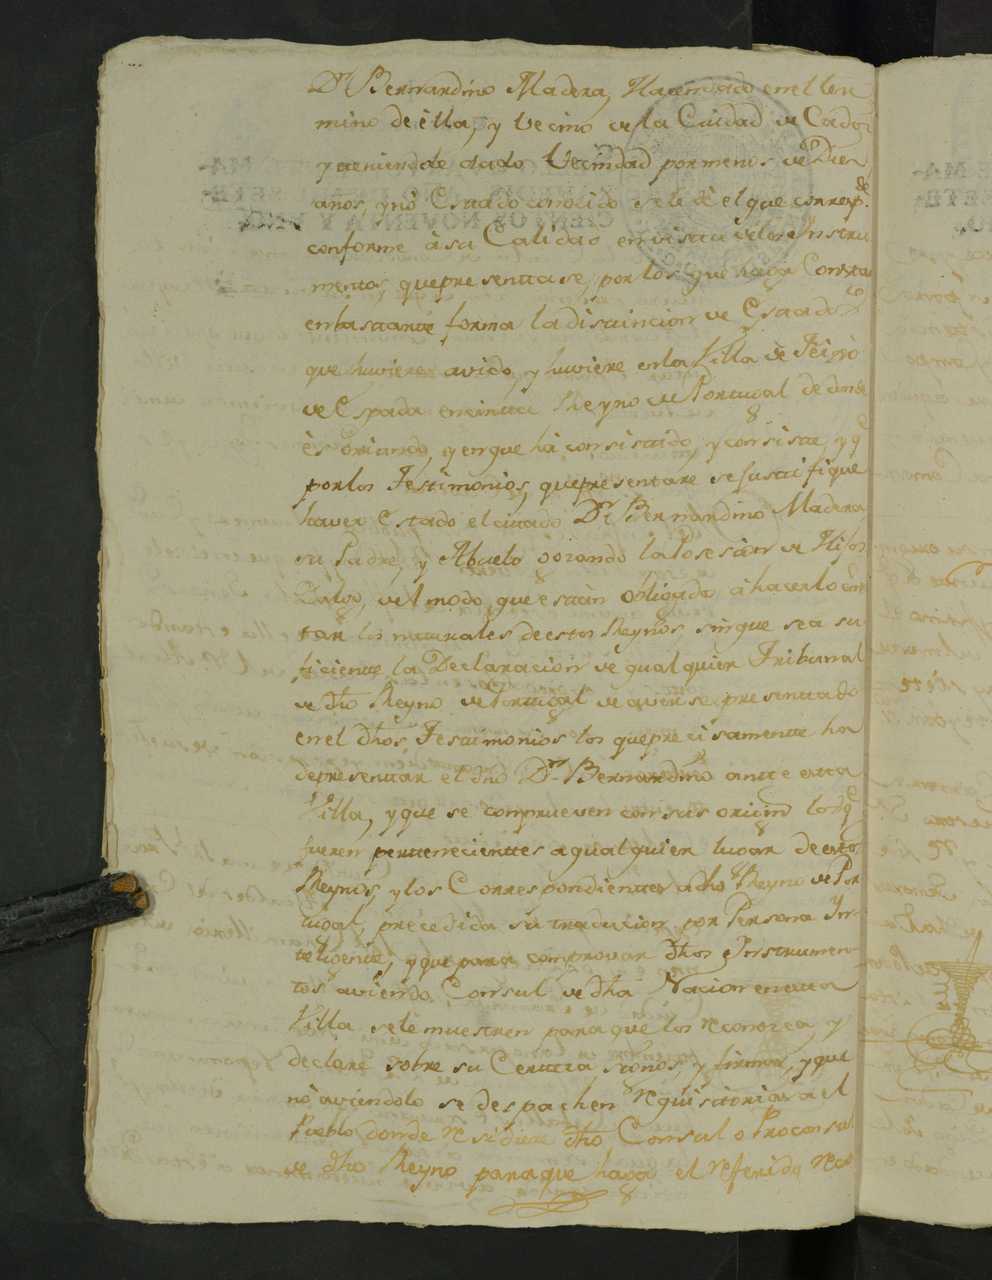 Dn. Bernardino Madera, Hacendado en el ter
mino de èlla, y Vecino de la Ciudad de Cadiz
y teniendo dado Vecindad por menos de Diez
años, y nò Estado conocido se le dè el que corresp.de
conforme à su Calidad en vista de los Ynstru
mentos, que presenttase, por los que haga Constar
en bastante forma la distincion de Estados
que huviere avido, y huviere en la Villa de Feijó
de Espada en cinta Reyno de Portugal de donde
ès oriundo, y en que hà consistido, y consiste, y q.e
por los Testimonios, que presentare se justifique
haver Estado el citado Dn. Bernardino Madera
su Padre, y Abuelo gozando la Posesion de Hijos
Dalgo, del modo, que estàn obligados à hacerlo con
tar los naturales de estos Reynos sin que sea su
ficiente la Declaracion de qualquier Tribunal
de dho Reyno de Portugal de averse presenttado
en el dhos Testimonios los que precisamente ha
de presenttar el dho Dn. Bernardino antte estta
Villa, y que se comprueven con sus origin.s los q.e
fueren perttenecienttes a qualquier lugar de estos
Reynos, y los Correspondienttes a dho Reyno de Por
tugal, precedida su traducion por Persona Yn-
teligente, y que para comprovar dhos Ynstrumen-
tos aviendo Consul de dha Nacion en estta
Villa se le muestren para que los reconozca y
declare sobre su Certeza signos, y firmas, y que
nò aviendolo se despachen requisitorias a el
Pueblo donde residiere dho Consul o Proconsul
de dho Reyno para que haga el referido reco